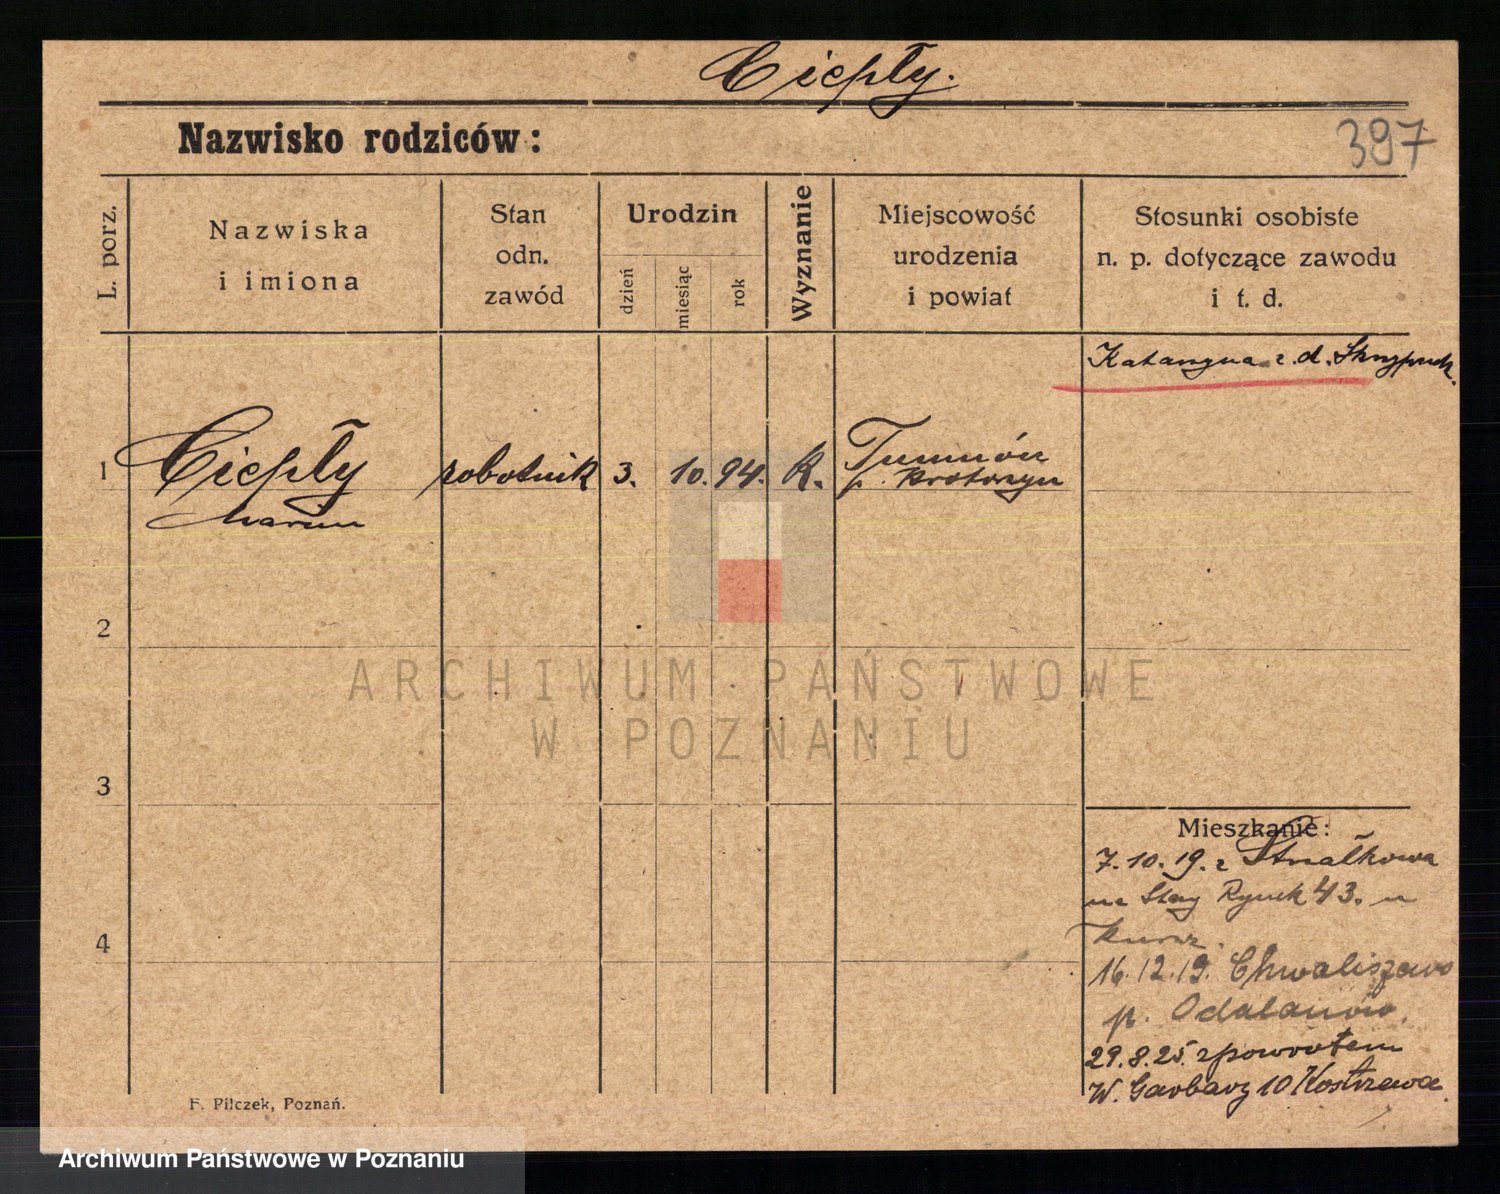 Ciepły.
Nazwisko rodziców:
397
L. porz.
Nazwiska
i imiona
Stan
odn.
zawód
Urodzin
dzień
miesiąc
rok
Wyznanie
Miejscowość
urodzenia
i powiat
Stosunki osobiste
n. p. dotyczące zawodu
i t. d.
Katarzyna z.d.
1
Ciepły
robotnik
3.
10.
94.
K.
p. Krotoszyn
2
3
4
ARCHIWUM PAŃSTWOWE
W POZNANIU
Mieszkanie:
7.10.19. z Strzałkowa
na Stary Rynek 43. u
16.12.19. Chwaliszewo
p. Odalanów.
29.8.25 zpowrotem
W. Garbary 10 Kostrzewa.
F. Pilczek, Poznań.
Archiwum Państwowe w Poznaniu